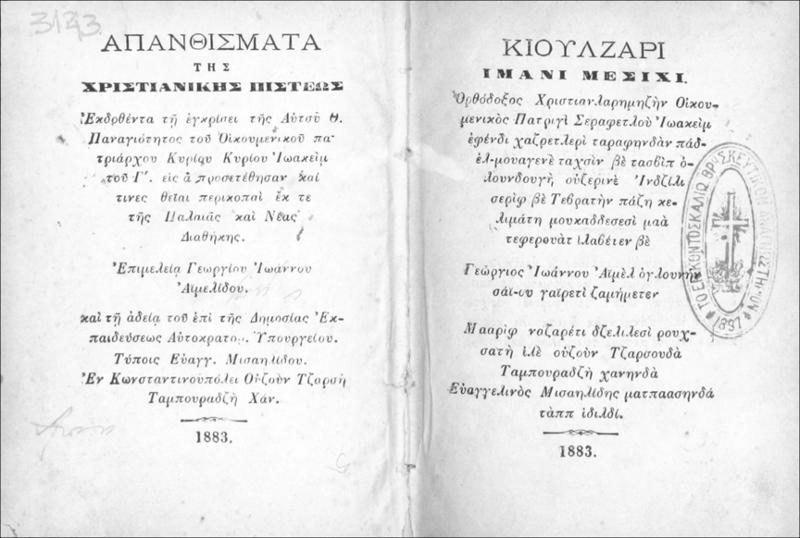 3143
ΑΠΑΝΘΙΣΜΑΤΑ
ΤΗΣ
ΧΡΙΣΤΙΑΝΙΚΗΣ ΠΙΣΤΕΩΣ
Ἐκδοθέντα τῇ ἐγκρίσει τῆς Αὐτοῦ Θ.
Παναγιότητος τοῦ Οἰκουμενικοῦ πα-
τριάρχου Κυρίου Κυρίου Ἰωακεὶμ
τοῦ Γ΄. εἰς ἃ προσετέθησαν καί
τινες θεῖαι περικοπαὶ ἔκ τε
τῆς Παλαιᾶς καὶ Νέας
Διαθήκης.
Ἐπιμελείᾳ Γεωργίου Ἰωάννου
Αἰμελίδου.
καὶ τῇ ἀδείᾳ τοῦ ἐπὶ τῆς Δημοσίας Ἐκ-
παιδεύσεως Αὐτοκρατορ. Ὑπουργείου.
Τύποις Εὐαγγ. Μισαηλίδου.
Ἐν Κωνσταντινουπόλει Οὐζοὺν Τζαρσῆ
Ταμπουρατζῆ Χάν.
1883.
ΚΙΟΥΛΖΑΡΙ
ΙΜΑΝΙ ΜΕΣΙΧΙ.
Ὀρθόδοξος Χριστιανλαρημηζὴν Οἰκου-
μενικὸς Πατριγὶ Σεραφετλοὺ Ἰωακεὶμ
ἐφένδι χαζρετλερὶ ταραφηνδὰν πάδ-
ἐλ-μουαγενὲ ταχσὶν βὲ τασβὶπ ὀ-
λουνδουγῆ οὐζερινὲ Ἰνδζίλι
σερὶφ βὲ Τεβρατὴν πάζη κε-
λιμάτη μουκαδδεσεσὶ μαὰ
τεφερουὰτ ἰλαβέτεν βὲ
Γεώργιος Ἰωάννου Αἰμὲλ ὀγλουνὴν
σάϊ-ου γαϊρετὶ ζαμήμετεν
Μααρὶφ νοζαρέτι δζελιλεσὶ ρουχ-
σατὴ ἰλὲ οὐζοὺν Τζαρσουδὰ
Ταμπουραδζῆ χανηνδὰ
Εὐαγγελινὸς Μισαηλίδης ματπαασηνδὰ
τὰππ ἰδιλδί.
1883.
ΤΟ ΕΝ ΚΟΝΤΟΣΚΑΛΙΩ ΘΡΗΣΚΕΥΤΙΚΟΝ ΑΝΑΓΝΩΣΤΗΡΙΟΝ
1897